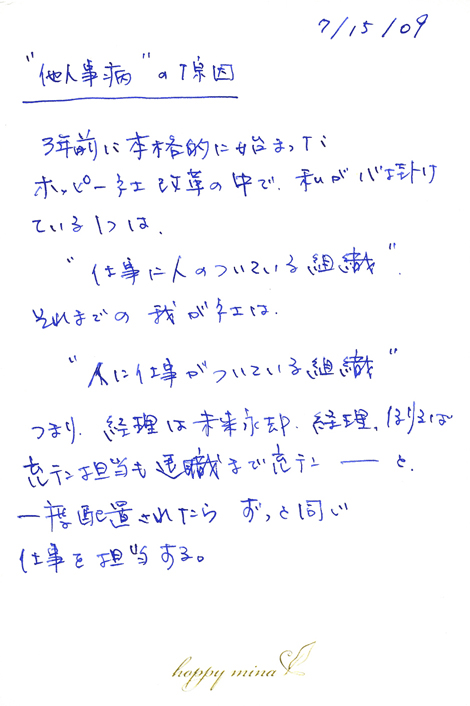 7/15/09
"他人事病"の原因
3年前に本格的に始まった
ホッピー社改革の中で、私が心掛け
ている1つは、
"仕事に人のついている組織".
それまでの我が社は、
"人に仕事がついている組織"
つまり、経理は未来永却、経理、
担当も退職まで ― と、
一度配置されたらずっと同じ
仕事を担当する。
hoppy mina